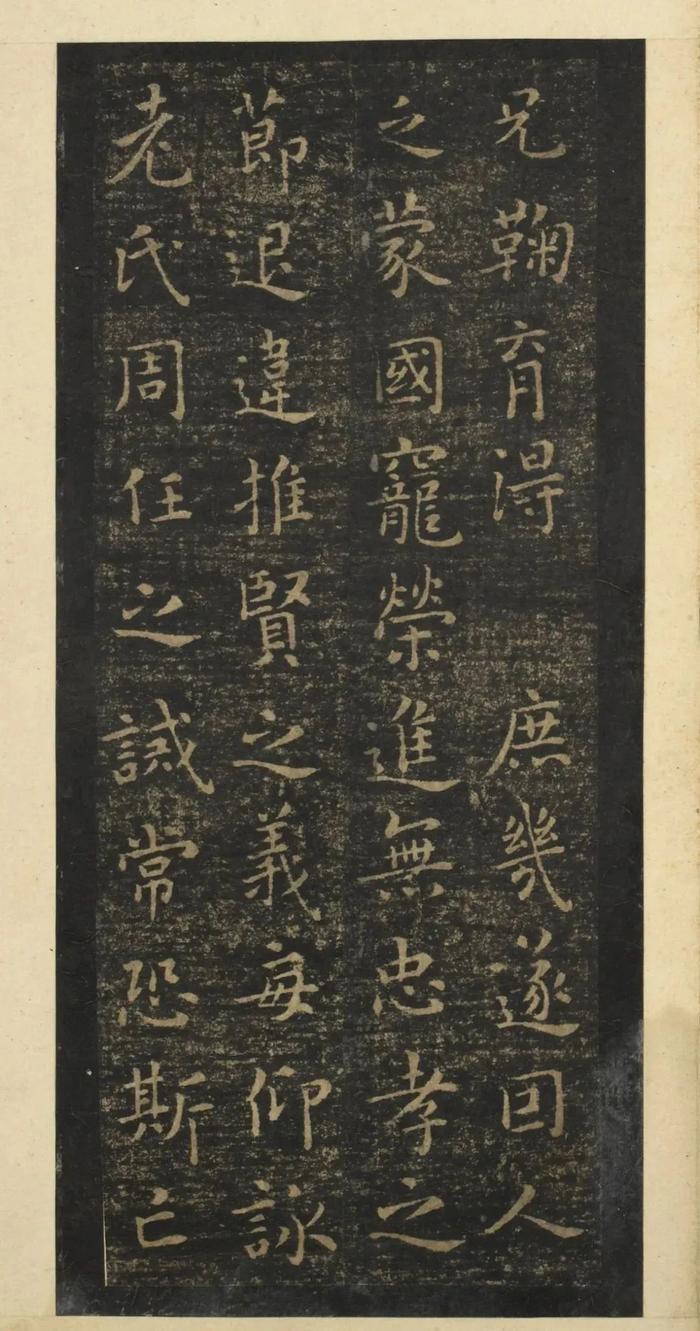 兄鞠育得　庶幾遂因人
之蒙國寵榮進無忠孝之
節退違推賢之義每仰詠
老氏周任之誡常恐斯亡